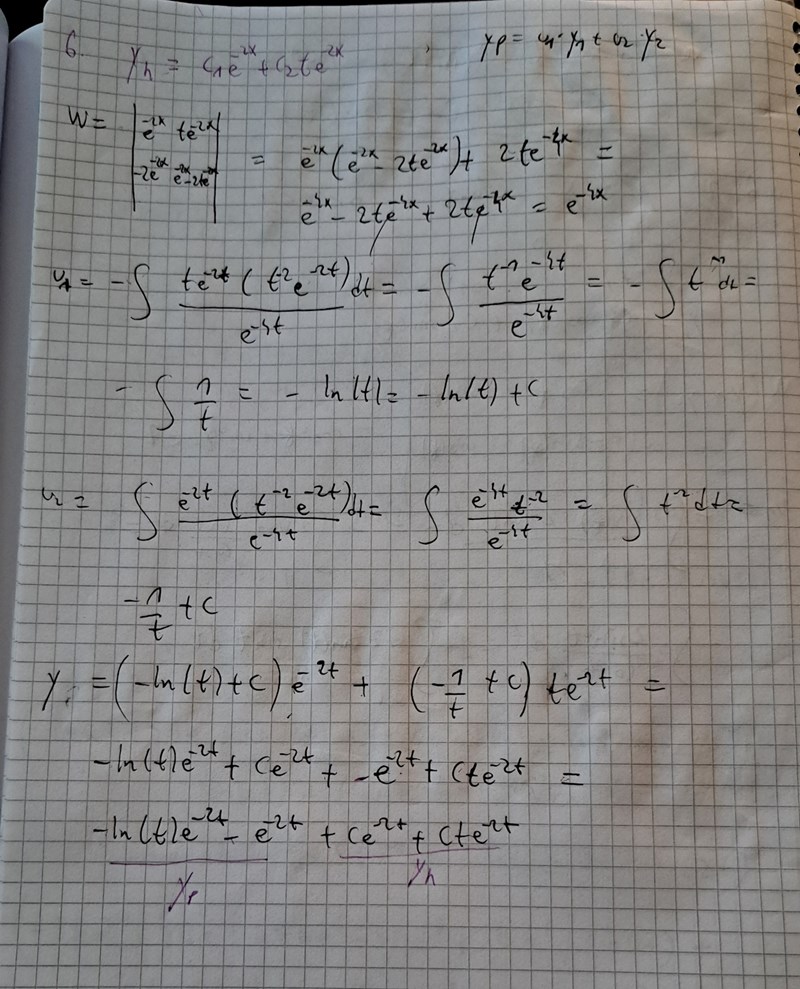 6. yh = c1e^-2x + c2te^-2x , yp = u1·y1 + u2·y2
W = | e^-2x te^-2x |
| -2e^-2x e^-2x - 2te^-2x | = e^-2x (e^-2x - 2te^-2x) + 2te^-4x =
e^-4x - 2te^-4x + 2te^-4x = e^-4x
u1 = - ∫ te^-2t (t^2 e^-2t) / e^-4t dt = - ∫ t^-1 e^-4t / e^-4t = - ∫ t^-1 dt =
- ∫ 1/t = - ln|t| = - ln(t) + C
u2 = ∫ e^-2t (t^-2 e^-2t) / e^-4t dt = ∫ e^-4t t^-2 / e^-4t = ∫ t^-2 dt =
- 1/t + C
y = (-ln(t) + C) e^-2t + (- 1/t + C) te^-2t =
-ln(t)e^-2t + Ce^-2t + -e^-2t + Cte^-2t =
-ln(t)e^-2t - e^-2t + Ce^-2t + Cte^-2t
yp yh